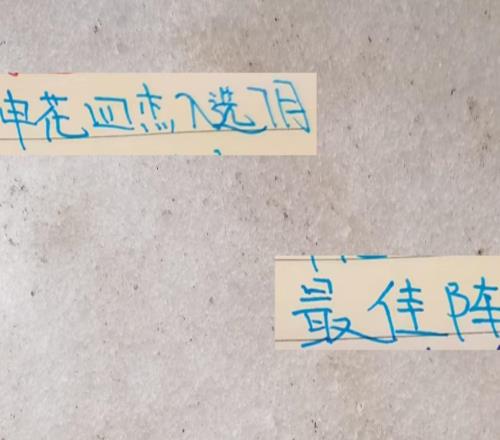 申花四杰入选7月
最佳阵